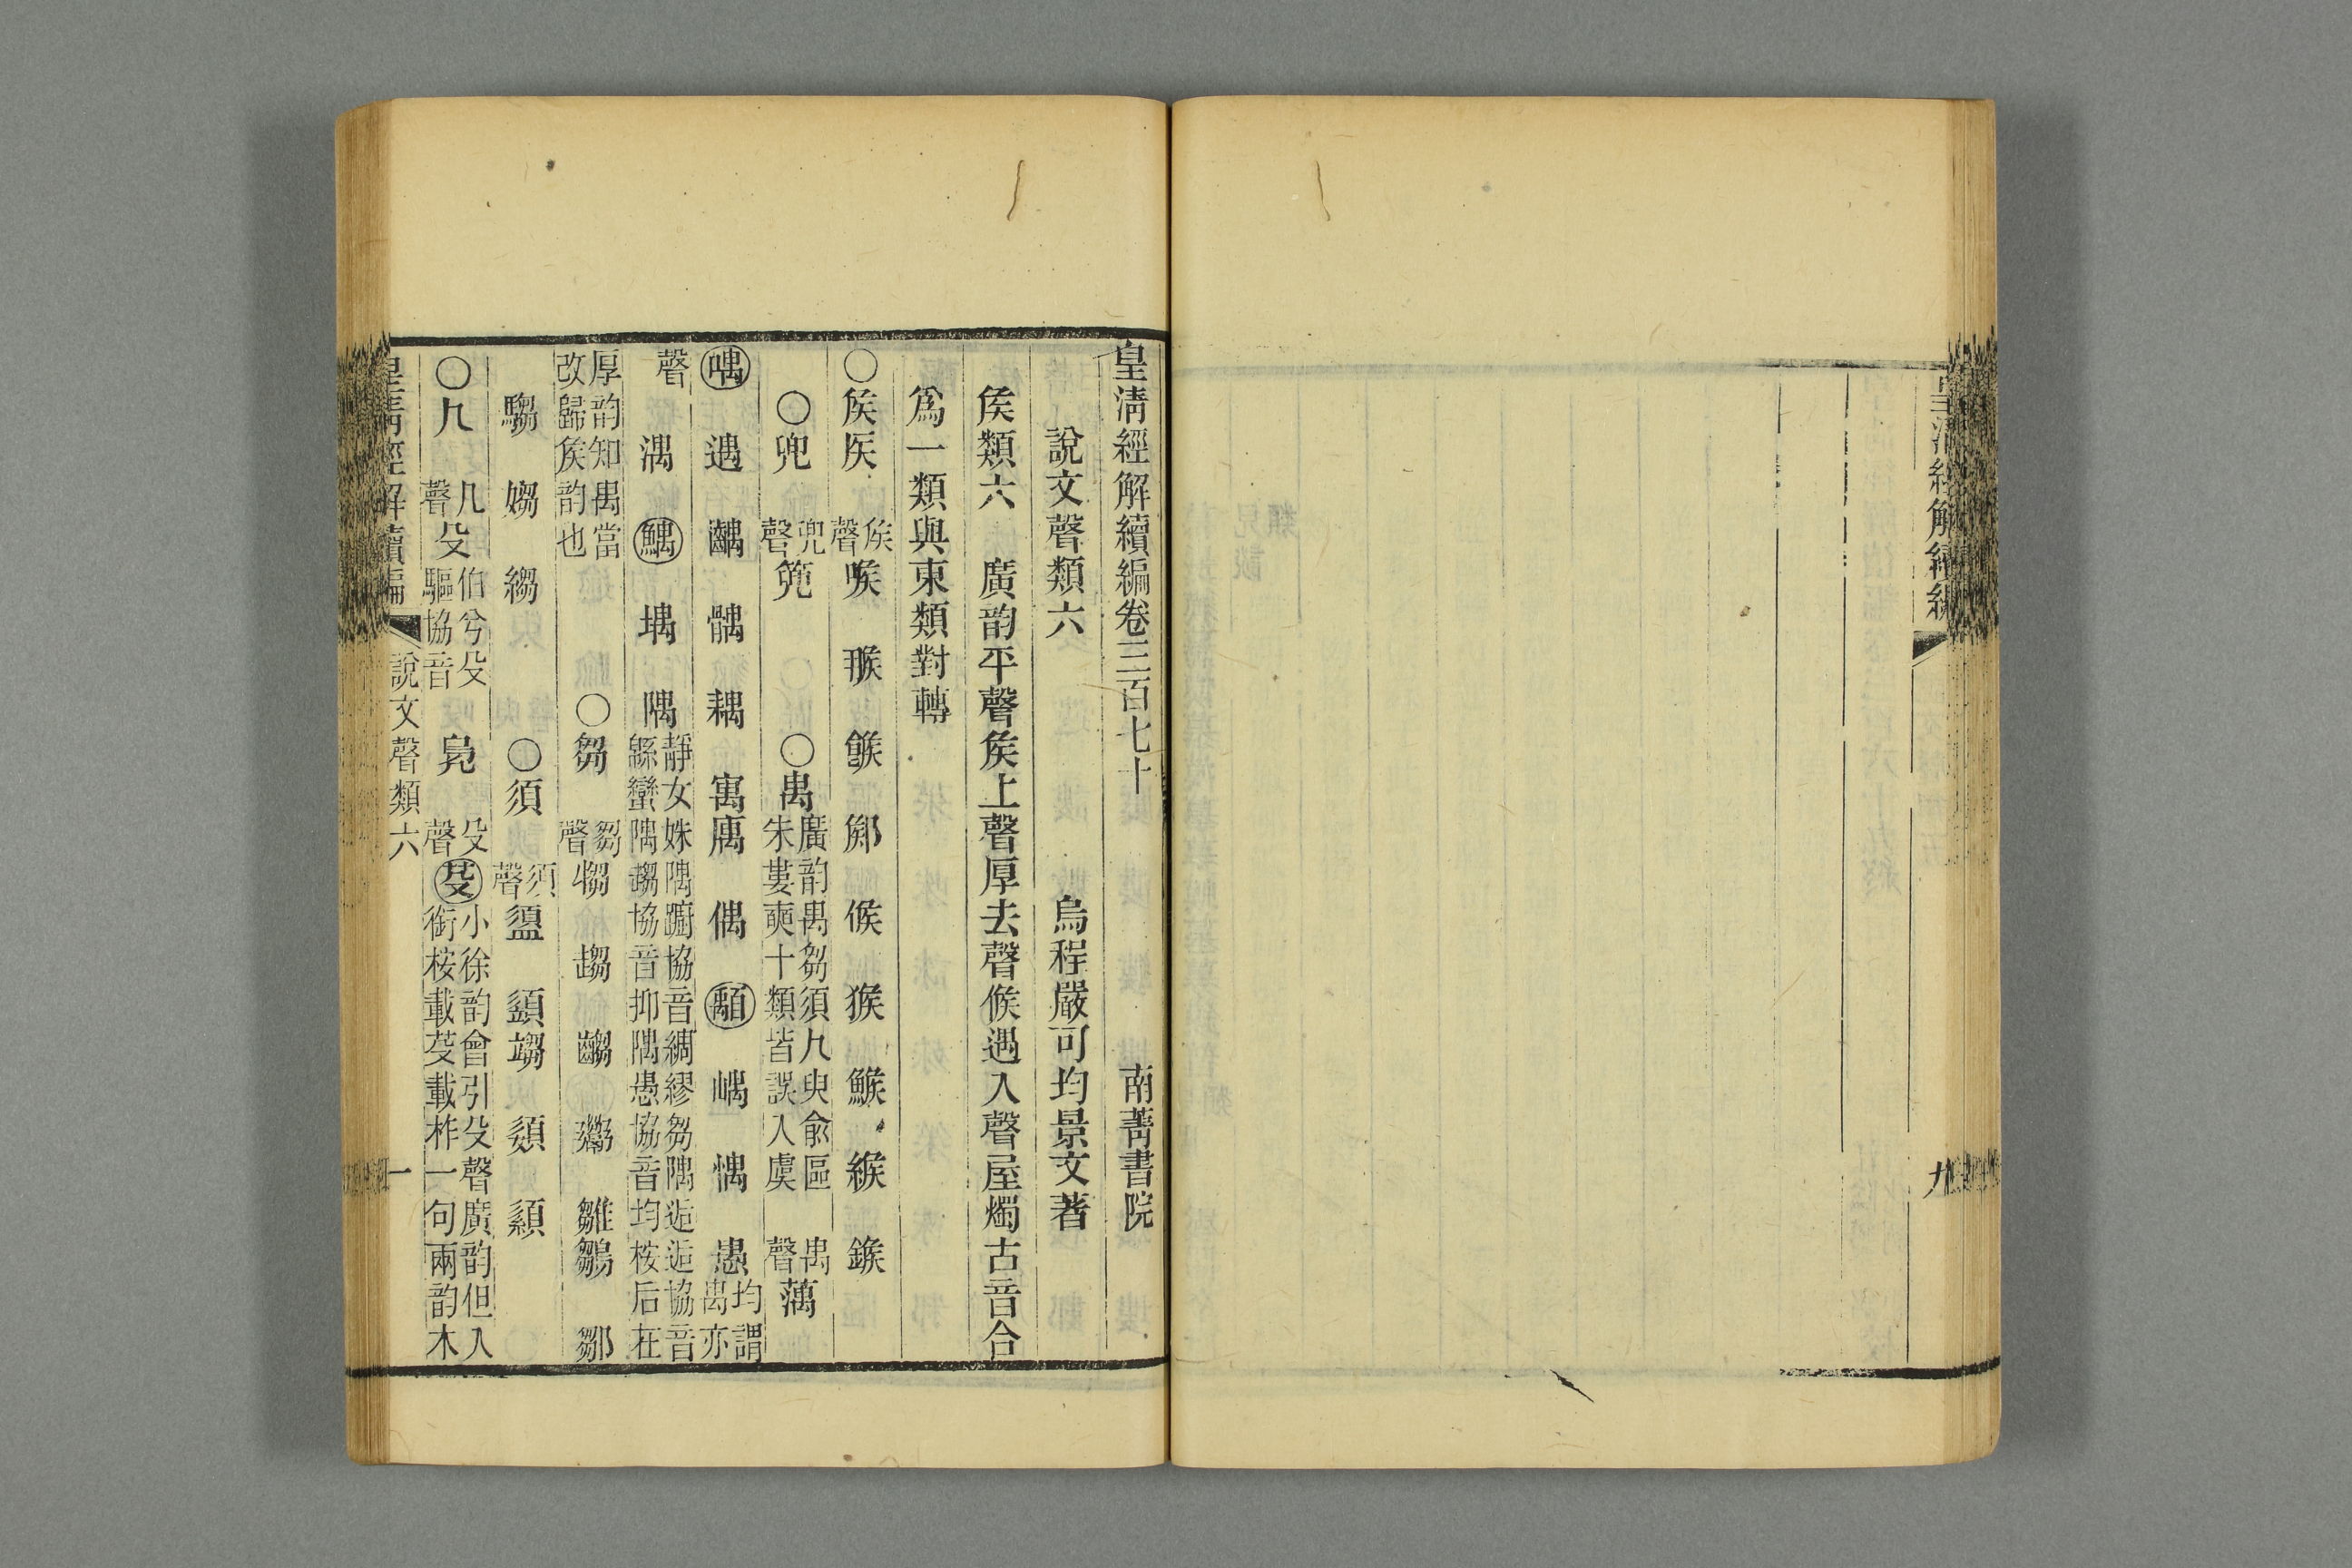 皇清經解續編
九
皇清經解續編卷三百七十 南菁書院
說文聲類六 烏程嚴可均景文著
矦類六 廣韵平聲矦上聲厚去聲候遇入聲屋燭古音合
爲一類與東類對轉
○矦㑋 矦聲 喉 㺅 餱 鄇 候 猴 鯸 緱 鍭
○兜 兜聲 篼 ○禺 廣韵禺芻須几臾兪區朱婁耎十類皆誤入虞 禺聲 萭
喁 遇 齵 髃 耦 寓 庽 偶 顒 嵎 惆 愚 均謂禺亦
聲 湡 鰅 堣 隅 靜女姝隅躕協音綢繆芻隅逅逅協音緜蠻隅趨協音抑隅愚協音均桉后在
厚韵知禺當改歸矦韵也 ○芻 芻聲 犓 趨 齺 雛 鶵 鄒
騶 媰 縐 ○須 須聲 盨 䇓 頾 䋶
○几 几聲 殳 伯兮殳驅協音 鳧 殳聲 芟 小徐韵會引殳聲廣韵但入銜桉載芟載柞一句兩韵木
皇清經解續編 說文聲類六 一